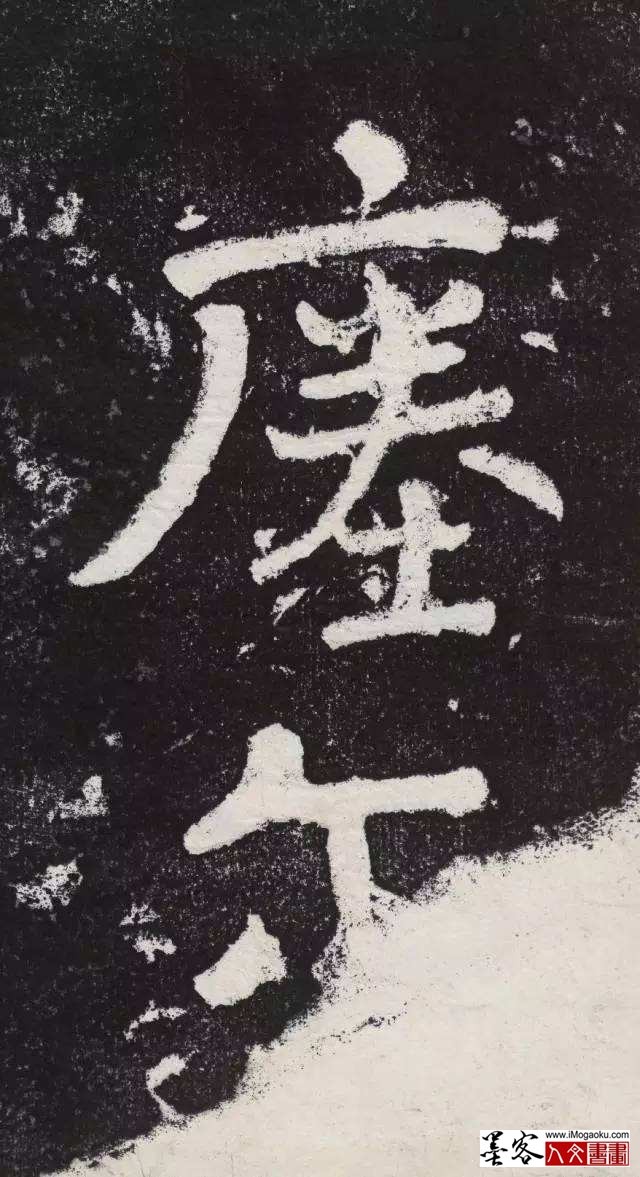 瘞尒
墨客 www.iMogaoku.com
人文書畫